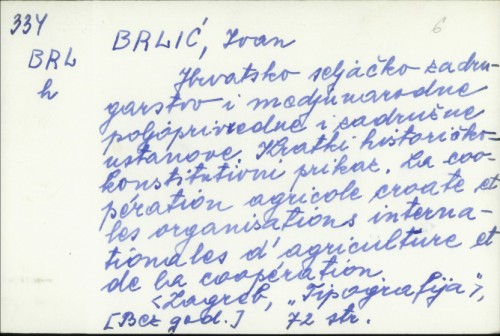 334
BRL
h
6
BRLIĆ, Ivan
Hrvatsko seljačko zadru-
garstvo i medjunarodne
poljoprivredne i zadružne
ustanove. Kratki historičko-
konstitutivni prikaz. La coo-
pération agricole croate et
les organisations interna-
tionales d'agriculture et
de la coopération.
<Zagreb, „Tipografija",>
[Bez god.] 72 str.